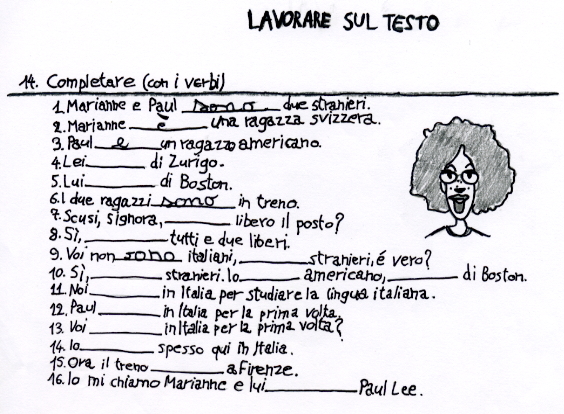 LAVORARE SUL TESTO
14. Completare (con i verbi)
1. Marianne e Paul sono due stranieri.
2. Marianne è una ragazza svizzera.
3. Paul e un ragazzo americano.
4. Lei ______ di Zurigo.
5. Lui ______ di Boston.
6. I due ragazzi sono in treno.
7. Scusi, signora, ______ libero il posto?
8. Sì, ______ tutti e due liberi.
9. Voi non sono italiani, ______ stranieri, é vero?
10. Sì, ______ stranieri. Io ______ americano, ______ di Boston.
11. Noi ______ in Italia per studiare la lingua italiana.
12. Paul ______ in Italia per la prima volta.
13. Voi ______ in Italia per la prima volta?
14. Io ______ spesso qui in Italia.
15. Ora il treno ______ a Firenze.
16. Io mi chiamo Marianne e lui ______ Paul Lee.